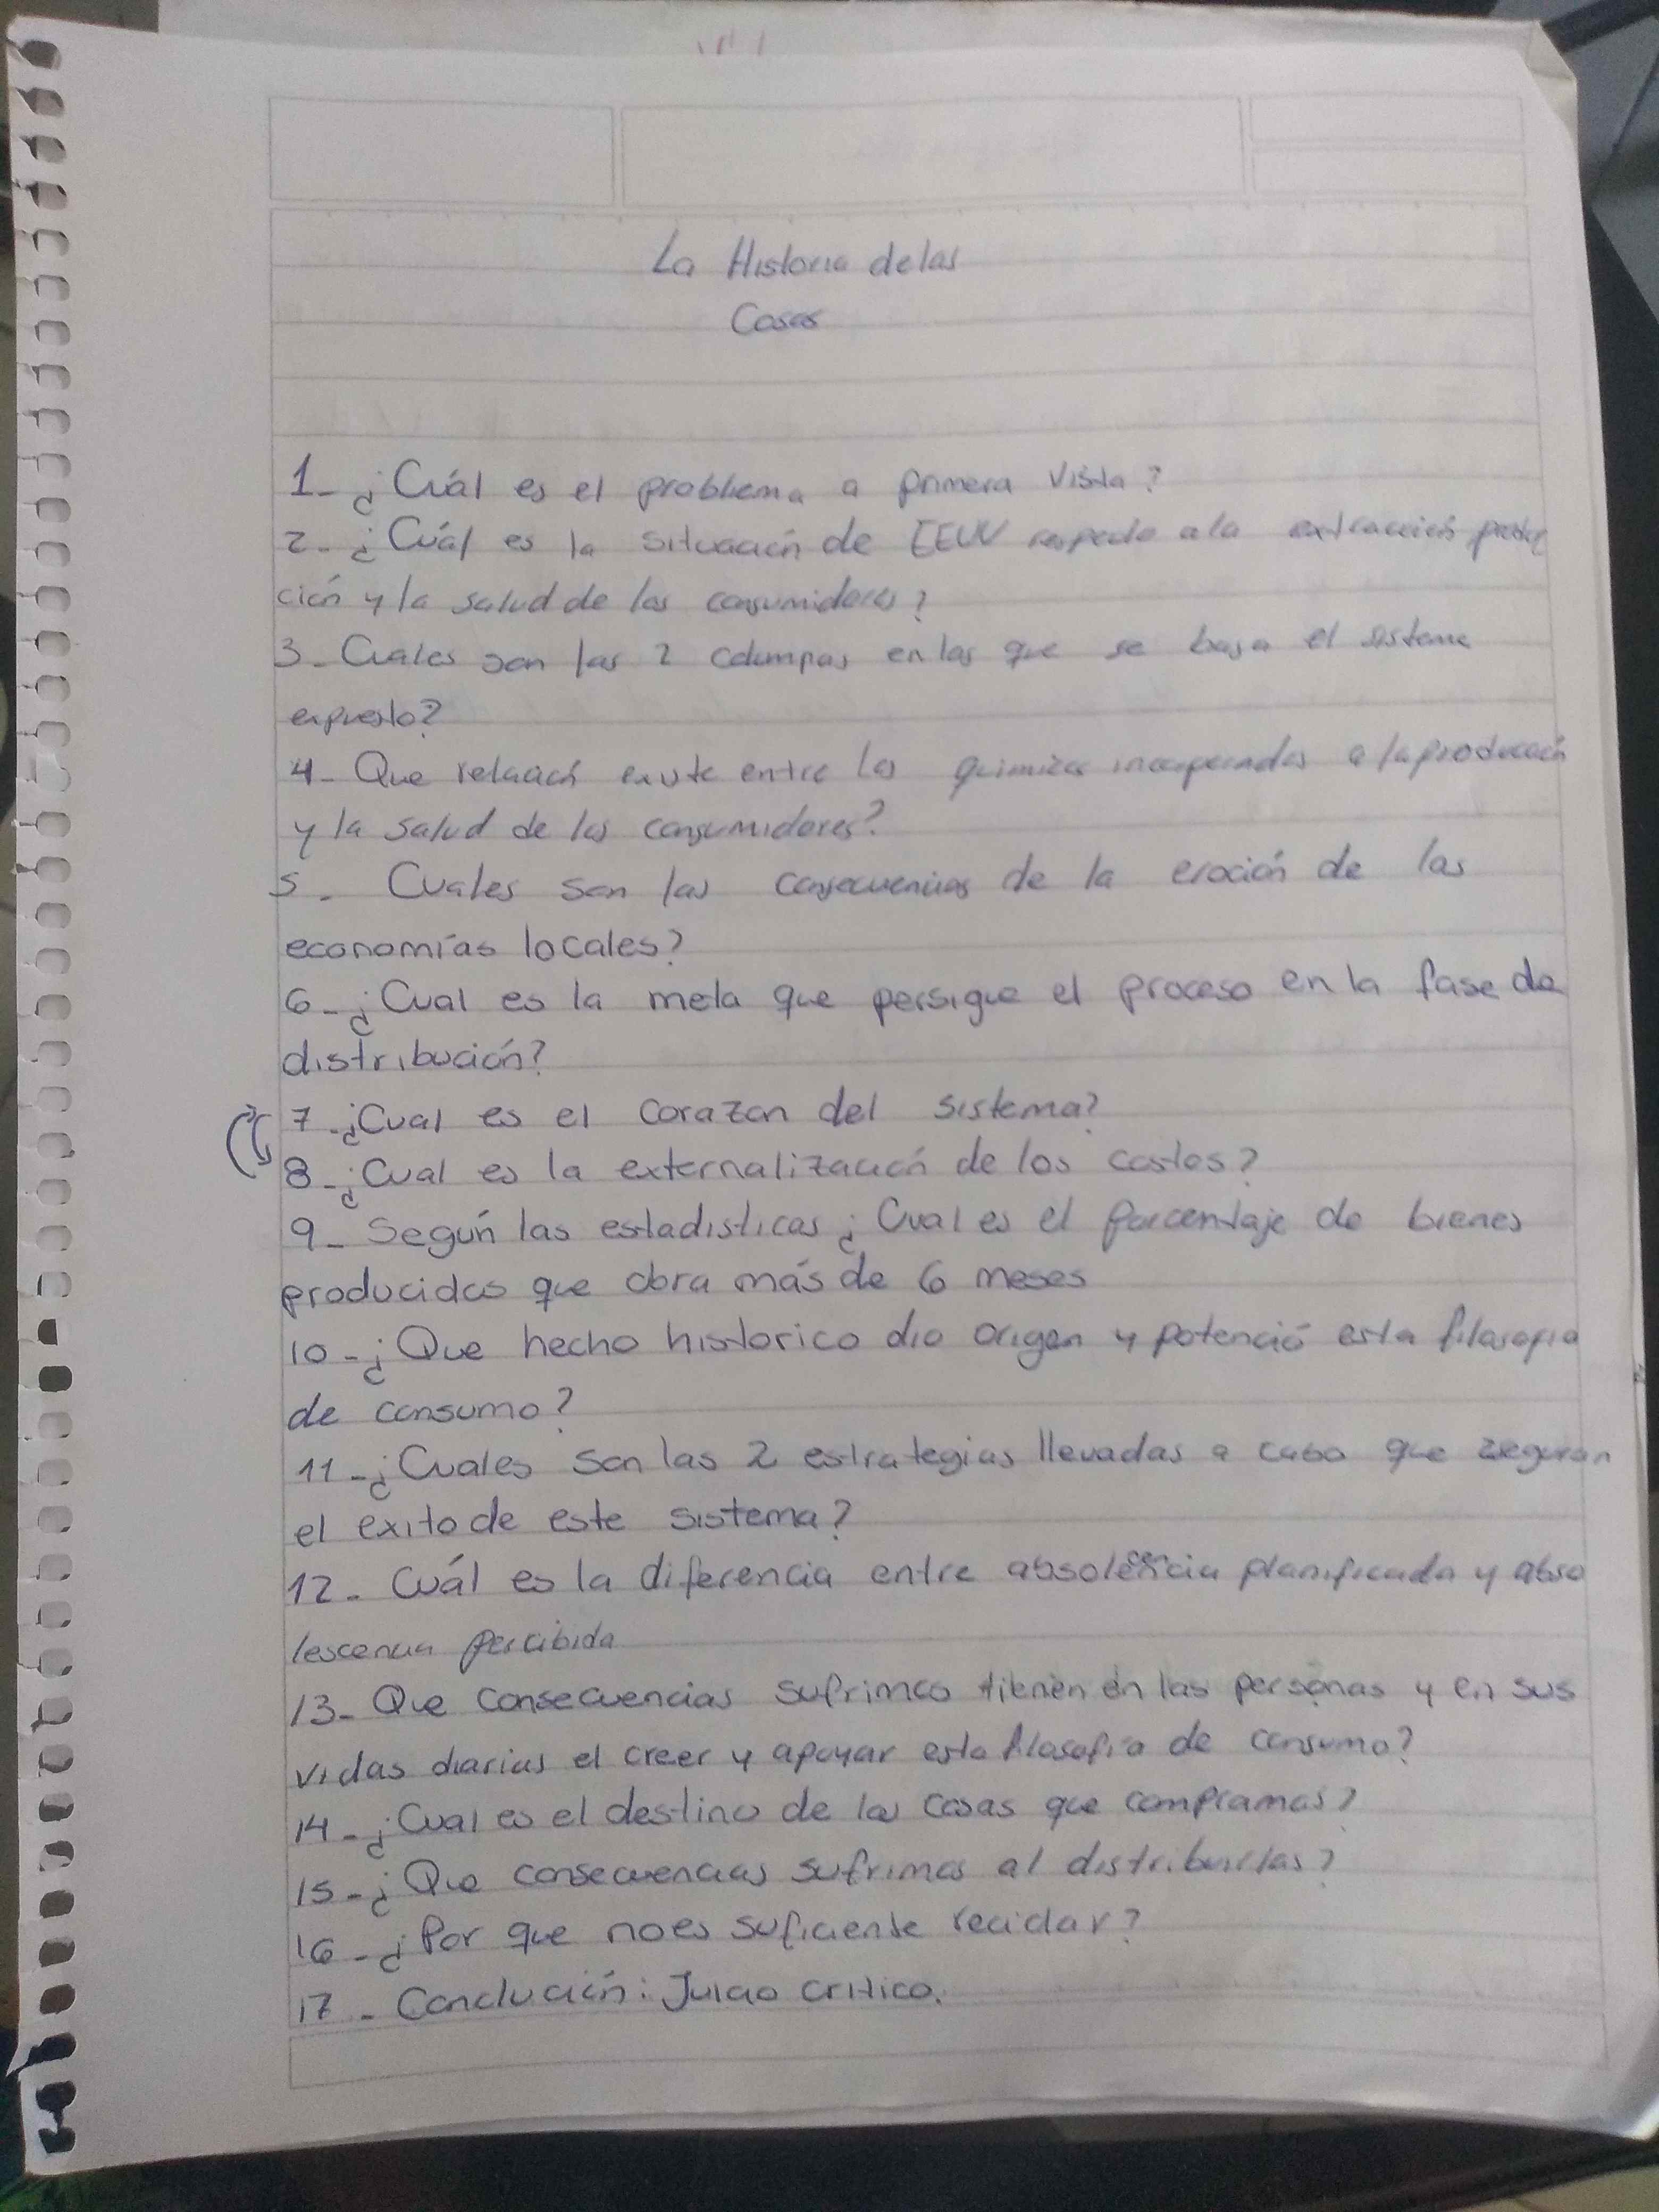 La Historia de las
Cosas
1- ¿Cuál es el problema a primera vista?
2- ¿Cuál es la situación de EEUU respecto a la extracción produc
ción y la salud de los consumidores?
3- Cuales son las 2 columpas en las que se basa el sistema
expuesto?
4- Que relación existe entre los quimicos incorporados a la producción
y la salud de los consumidores?
5. Cuales son las consecuencias de la eroción de las
economías locales?
6- ¿Cual es la meta que persigue el proceso en la fase de
distribución?
7- ¿Cual es el corazon del sistema?
8- ¿Cual es la externalización de los costos?
9- Según las estadisticas ¿Cual es el porcentaje de bienes
producidos que obra más de 6 meses
10- ¿Que hecho historico dio origen y potenció esta filosofia
de consumo?
11- ¿Cuales son las 2 estrategias llevadas a cabo que
el exito de este sistema?
12- Cuál es la diferencia entre absolescencia planificada y abso
lescencia percibida
13- Que consecuencias sufrimos tienen en las personas y en sus
vidas diarias el creer y apoyar esta filosofía de consumo?
14- ¿Cual es el destino de las cosas que compramos?
15- ¿Que consecuencias sufrimos al distribuirlas?
16- ¿Por que no es suficiente reciclar?
17- Conclución: Juicio critico.